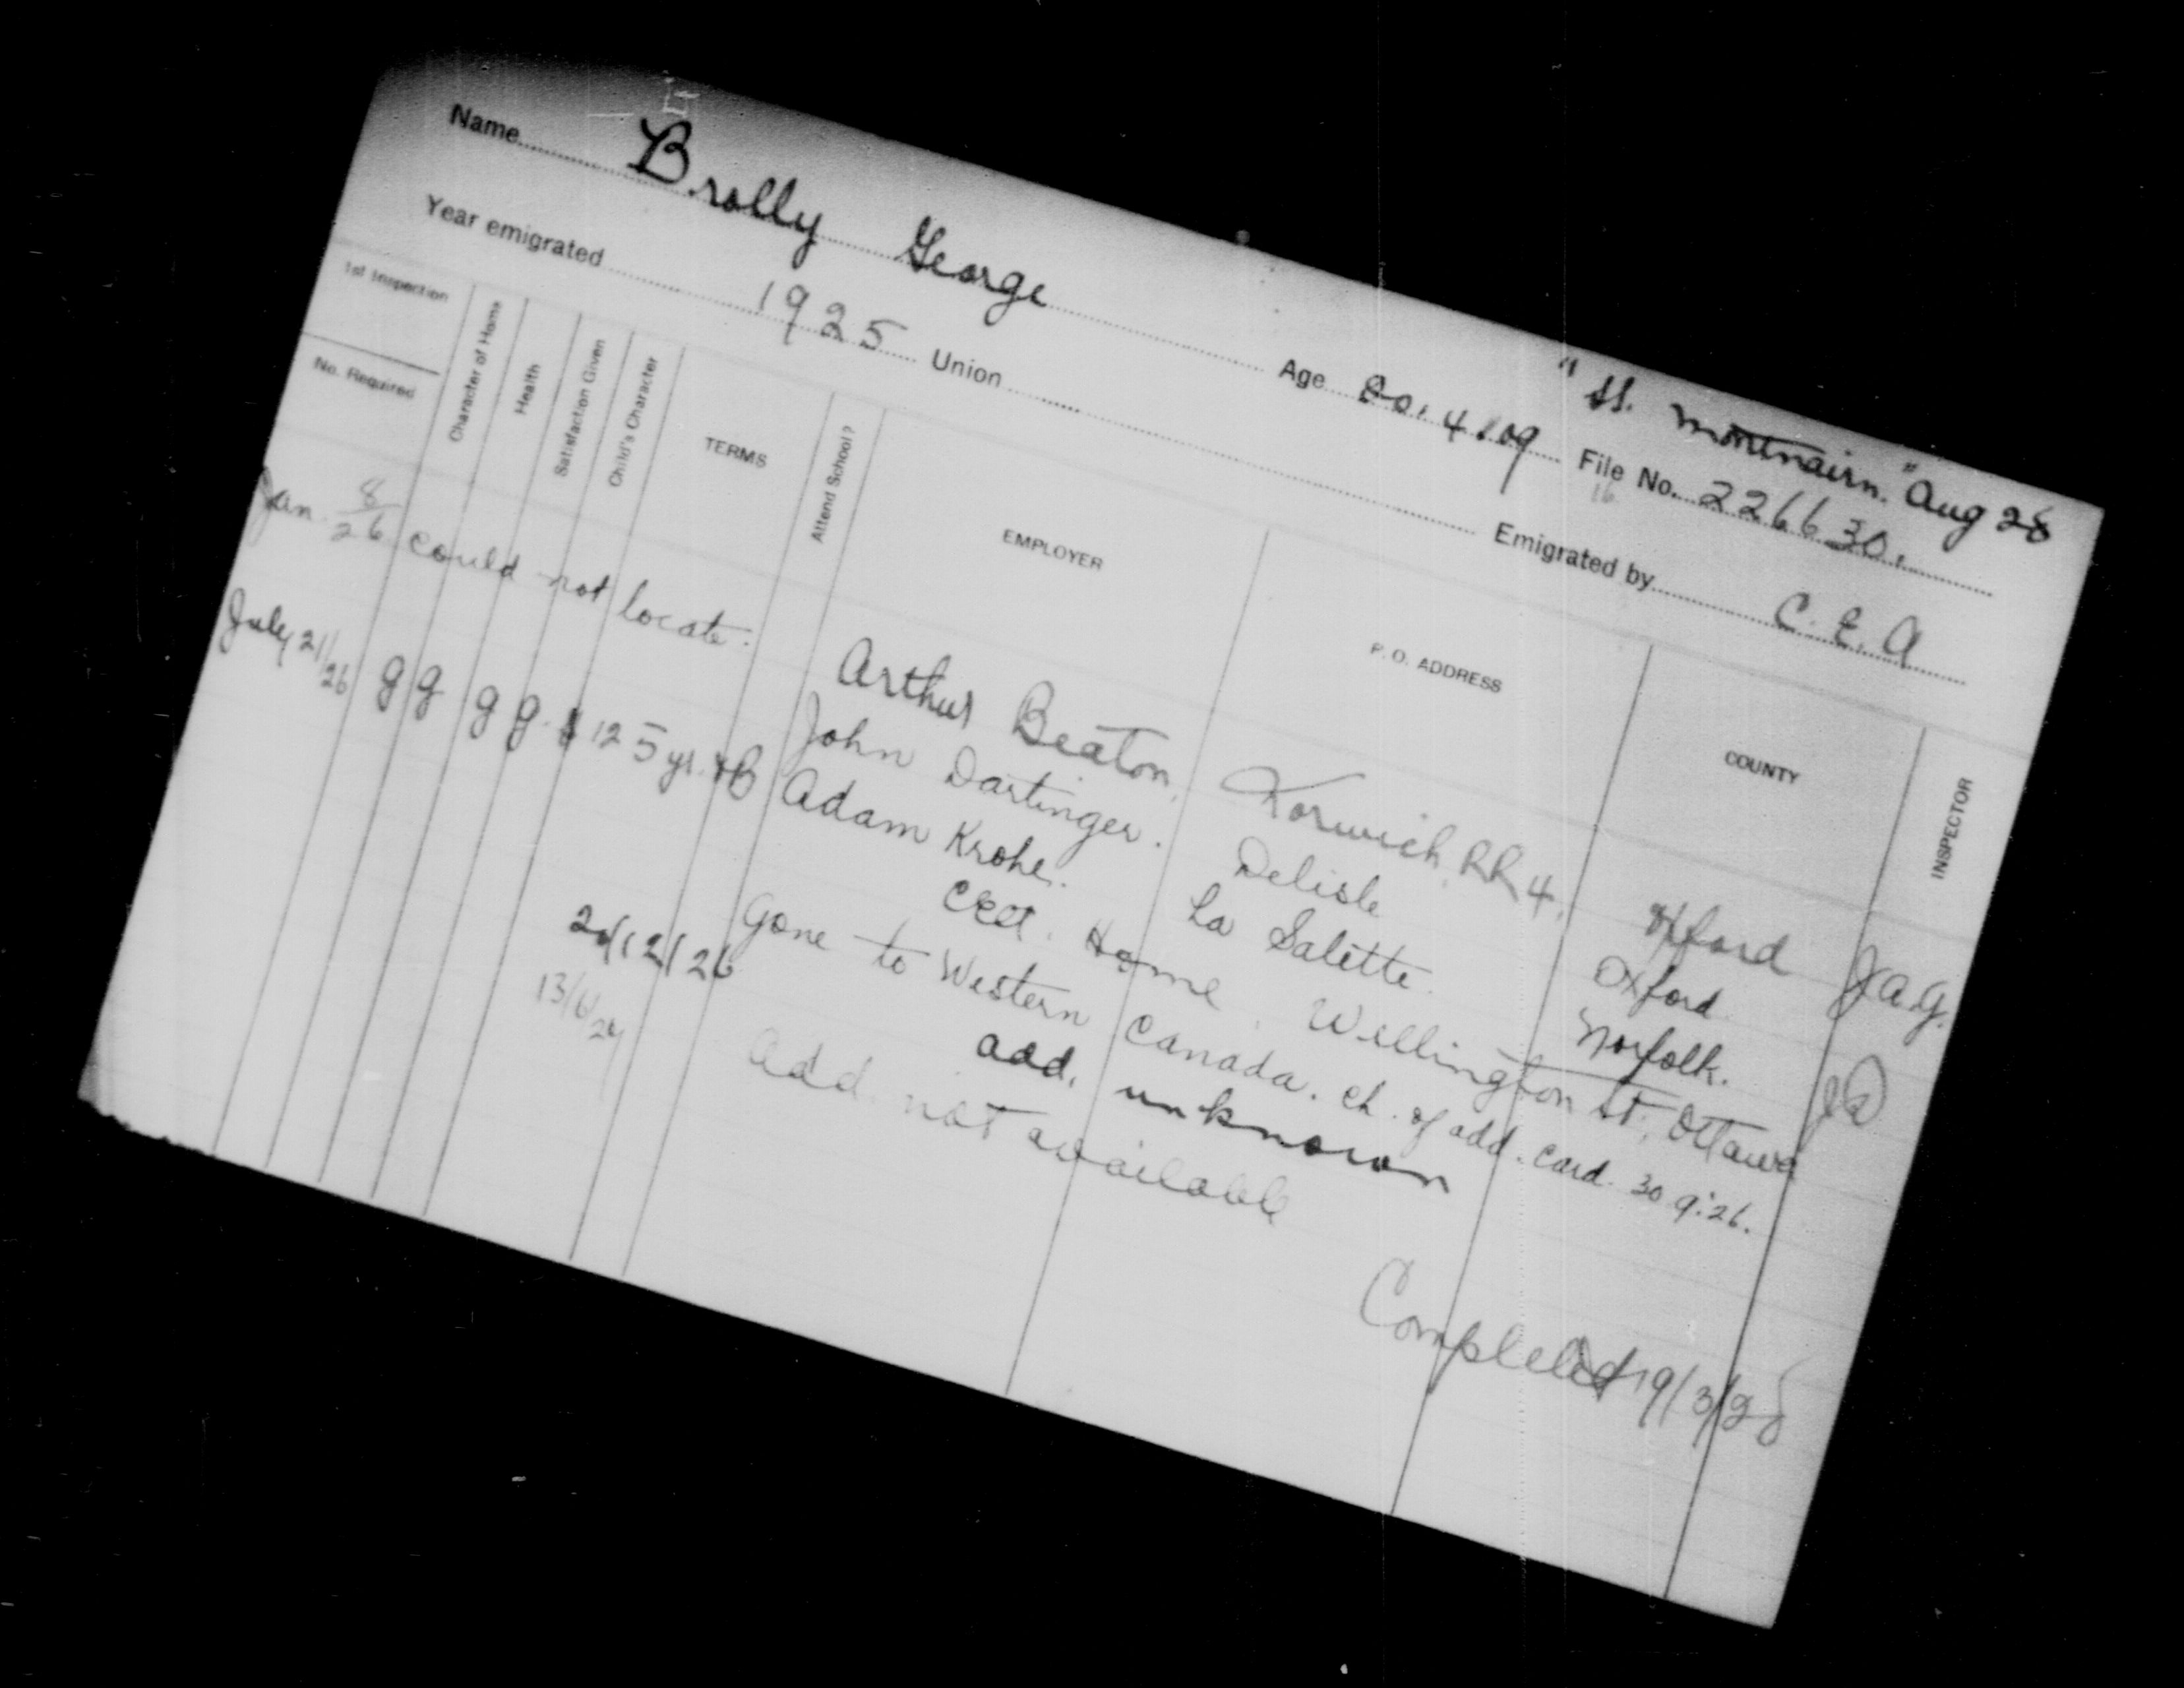 "SS. Montnairn." Aug 28
Name Brolly George Age 20.4.09 File No. 226630.
16
Year emigrated 1925 Union Emigrated by C.E.A
1st Inspection
No. Required
Character of Home
Health
Satisfaction Given
Child's Character
TERMS
Attend School?
EMPLOYER
P. O. ADDRESS
COUNTY
INSPECTOR
Jan. 8/26 could not locate. Arthur Beaton, Norwich, RR 4, Oxford J.A.G.
John Dartinger. Delisle Oxford
July 21/26 g g g g. $125 yr. & B Adam Krohe. La Salette. Norfolk.
CEA. Home. Wellington St., Ottawa
Gone to Western Canada. Ch. of add. card. 30.9.26.
20/12/26 add. unknown
13/6/27 Add. not available
Completed 19/3/28